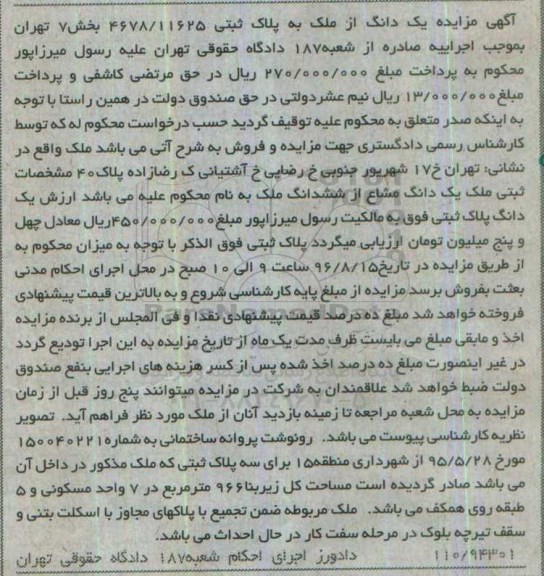 آگهی مزایده یک دانگ از ملک به پلاک ثبتی ۴۶۷۸/۱۱۶۲۵ بخش۷ تهران
بموجب اجراییه صادره از شعبه۱۸۷ دادگاه حقوقی تهران علیه رسول میرزاپور
محکوم به پرداخت مبلغ ۲۷۰/۰۰۰/۰۰۰ ریال در حق مرتضی کاشفی و پرداخت
مبلغ۱۳/۰۰۰/۰۰۰ ریال نیم عشردولتی در حق صندوق دولت در همین راستا با توجه
به اینکه صدر متعلق به محکوم علیه توقیف گردید حسب درخواست محکوم له که توسط
کارشناس رسمی دادگستری جهت مزایده و فروش به شرح آتی می باشد ملک واقع در
نشانی: تهران خ۱۷ شهریور جنوبی خ رضایی خ آشتیانی ک رضازاده پلاک۴۰ مشخصات
ثبتی ملک یک دانگ مشاع از ششدانگ ملک به نام محکوم علیه می باشد ارزش یک
دانگ پلاک ثبتی فوق به مالکیت رسول میرزاپور مبلغ۴۵۰/۰۰۰/۰۰۰ریال معادل چهل
و پنج میلیون تومان ارزیابی میگردد پلاک ثبتی فوق الذکر با توجه به میزان محکوم به
از طریق مزایده در تاریخ۹۶/۸/۱۵ ساعت ۹ الی ۱۰ صبح در محل اجرای احکام مدنی
بعثت بفروش برسد مزایده از مبلغ پایه کارشناسی شروع و به بالاترین قیمت پیشنهادی
فروخته خواهد شد مبلغ ده درصد قیمت پیشنهادی نقدا و فی المجلس از برنده مزایده
اخذ و مابقی مبلغ می بایست ظرف مدت یک ماه از تاریخ مزایده به این اجرا تودیع گردد
در غیر اینصورت مبلغ ده درصد اخذ شده پس از کسر هزینه های اجرایی بنفع صندوق
دولت ضبط خواهد شد علاقمندان به شرکت در مزایده میتوانند پنج روز قبل از زمان
مزایده به محل شعبه مراجعه تا زمینه بازدید آنان از ملک مورد نظر فراهم آید. تصویر
نظریه کارشناسی پیوست می باشد. رونوشت پروانه ساختمانی به شماره۱۵۰۰۴۰۲۲۱
مورخ ۹۵/۵/۲۸ از شهرداری منطقه۱۵ برای سه پلاک ثبتی که ملک مذکور در داخل آن
می باشد صادر گردیده است مساحت کل زیربنا۹۶۶ مترمربع در ۷ واحد مسکونی و ۵
طبقه روی همکف می باشد. ملک مربوطه ضمن تجمیع با پلاکهای مجاوز با اسکلت بتنی و
سقف تیرچه بلوک در مرحله سفت کار در حال احداث می باشد.
۱۱۰/۹۴۳۰۱ دادورز اجرای احکام شعبه۱۸۷ دادگاه حقوقی تهران